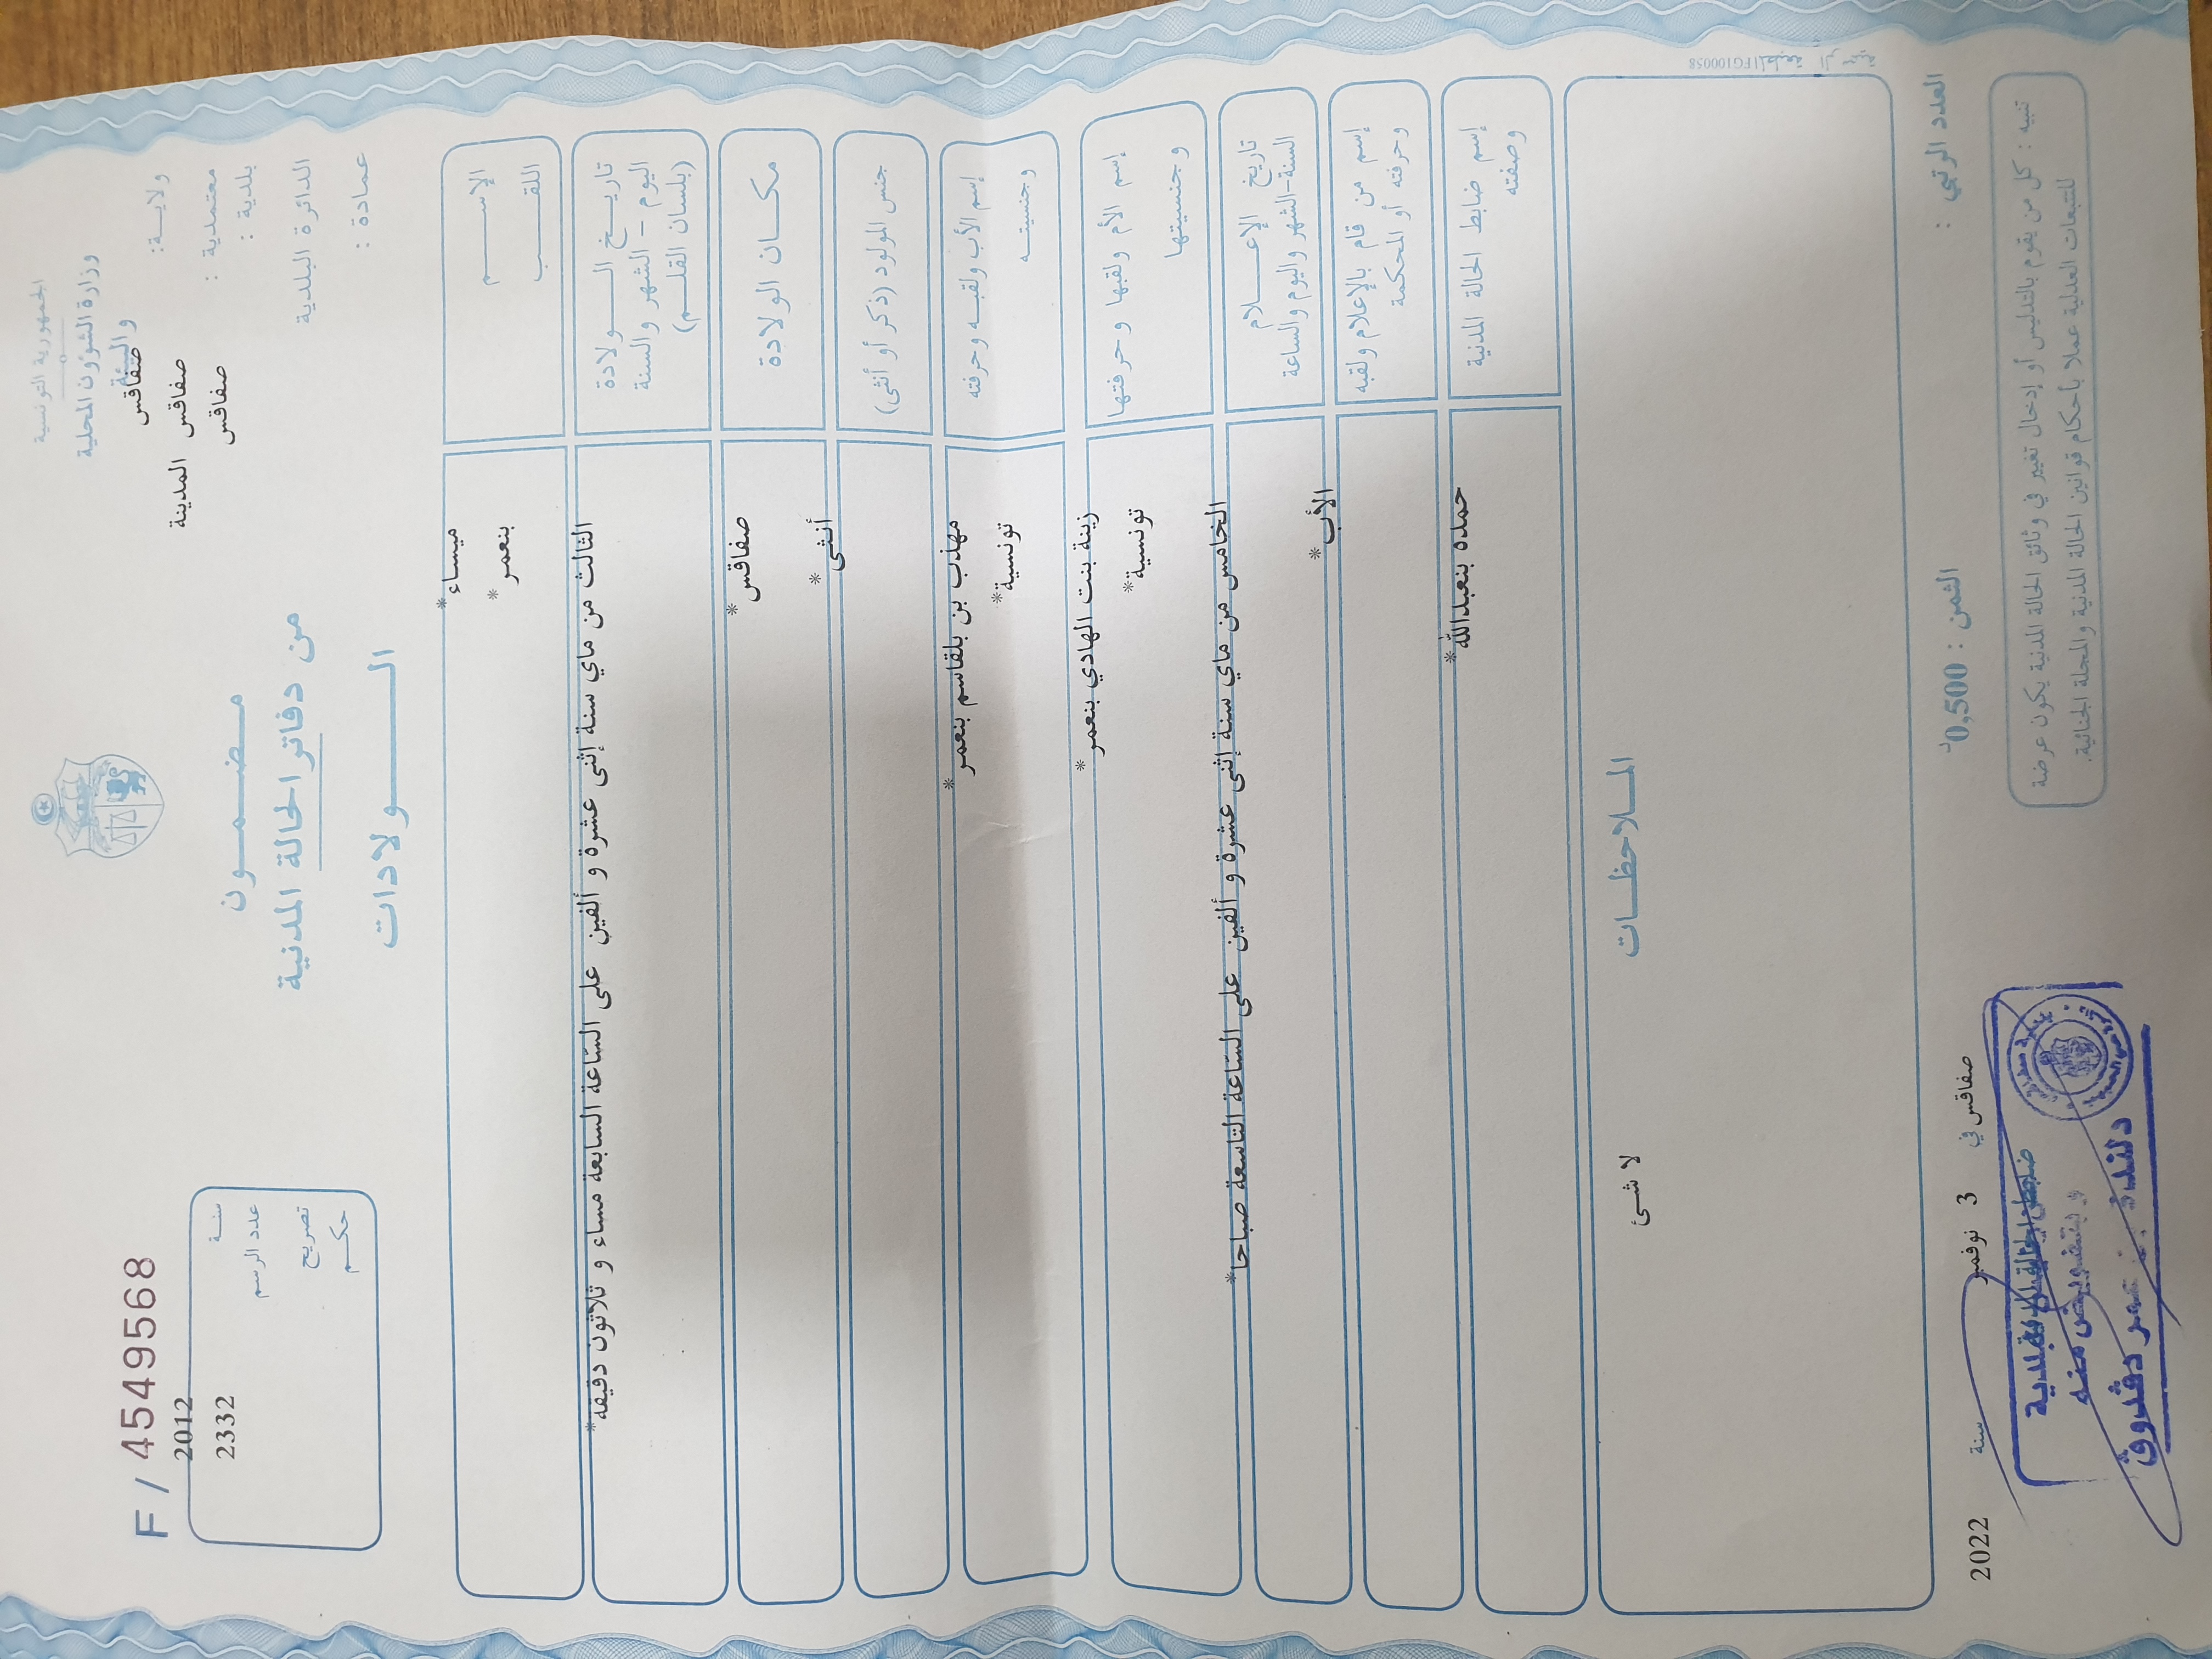 الجمهورية التونسية
وزارة الشؤون المحلية
والبيئة
ولاية: صفاقس
معتمدية : صفاقس المدينة
بلدية : صفاقس
الدائرة البلدية
عمادة :
مضمون
من دفاتر الحالة المدنية
الولادات
F / 4549568
سنة 2012
عدد الرسم 2332
تصريح
حكم
الإسم ميساء*
اللقب بنعمر*
تاريخ الولادة الثالث من ماي سنة إثنى عشرة و ألفين على الساعة السابعة مساء و ثلاثون دقيقة*
اليوم – الشهر والسنة
(بلسان القلم)
مكان الولادة صفاقس*
جنس المولود (ذكر أو أنثى) أنثى*
إسم الأب ولقبه وحرفته مهذب بن بلقاسم بنعمر*
وجنسيته تونسية*
إسم الأم ولقبها وحرفتها زينة بنت الهادي بنعمر*
وجنسيتها تونسية*
تاريخ الإعلام الخامس من ماي سنة إثنى عشرة و ألفين على الساعة التاسعة صباحا*
السنة-الشهر واليوم والساعة
إسم من قام بالإعلام ولقبه الأب*
وحرفته أو المحكمة
إسم ضابط الحالة المدنية حمده بنعبدالله*
وصفته
الملاحظات
لا شئ
FG100058
العدد الرتبي :
الثمن : 0,500د
صفاقس في 3 نوفمبر سنة 2022
تنبيه : كل من يقوم بالتدليس أو إدخال تغيير في وثائق الحالة المدنية يكون عرضة
للتتبعات العدلية عملا بأحكام قوانين الحالة المدنية والمجلة الجنائية.
و بتفويض منه
دلندة بنعمر دقدوق